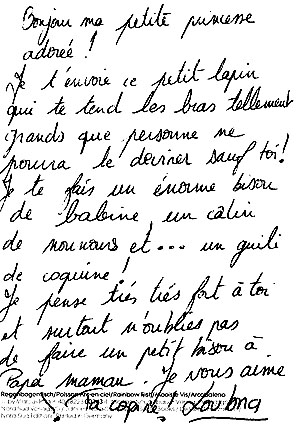 Bonjour ma petite princesse
adorée !
Je t'envoie ce petit lapin
qui te tend les bras tellement
grands que personne ne
pourra le deviner sauf toi !
Je te fais un énorme bisou
de baleine un calin
de nounours et... un guili
de coquine !
Je pense très très fort à toi
et surtout n'oublies pas
de faire un petit bisou à
Papa maman. Je vous aime
Regenbogenfisch/Poisson Arc-en-ciel/Rainbow Fish/
ta copine, Loulma